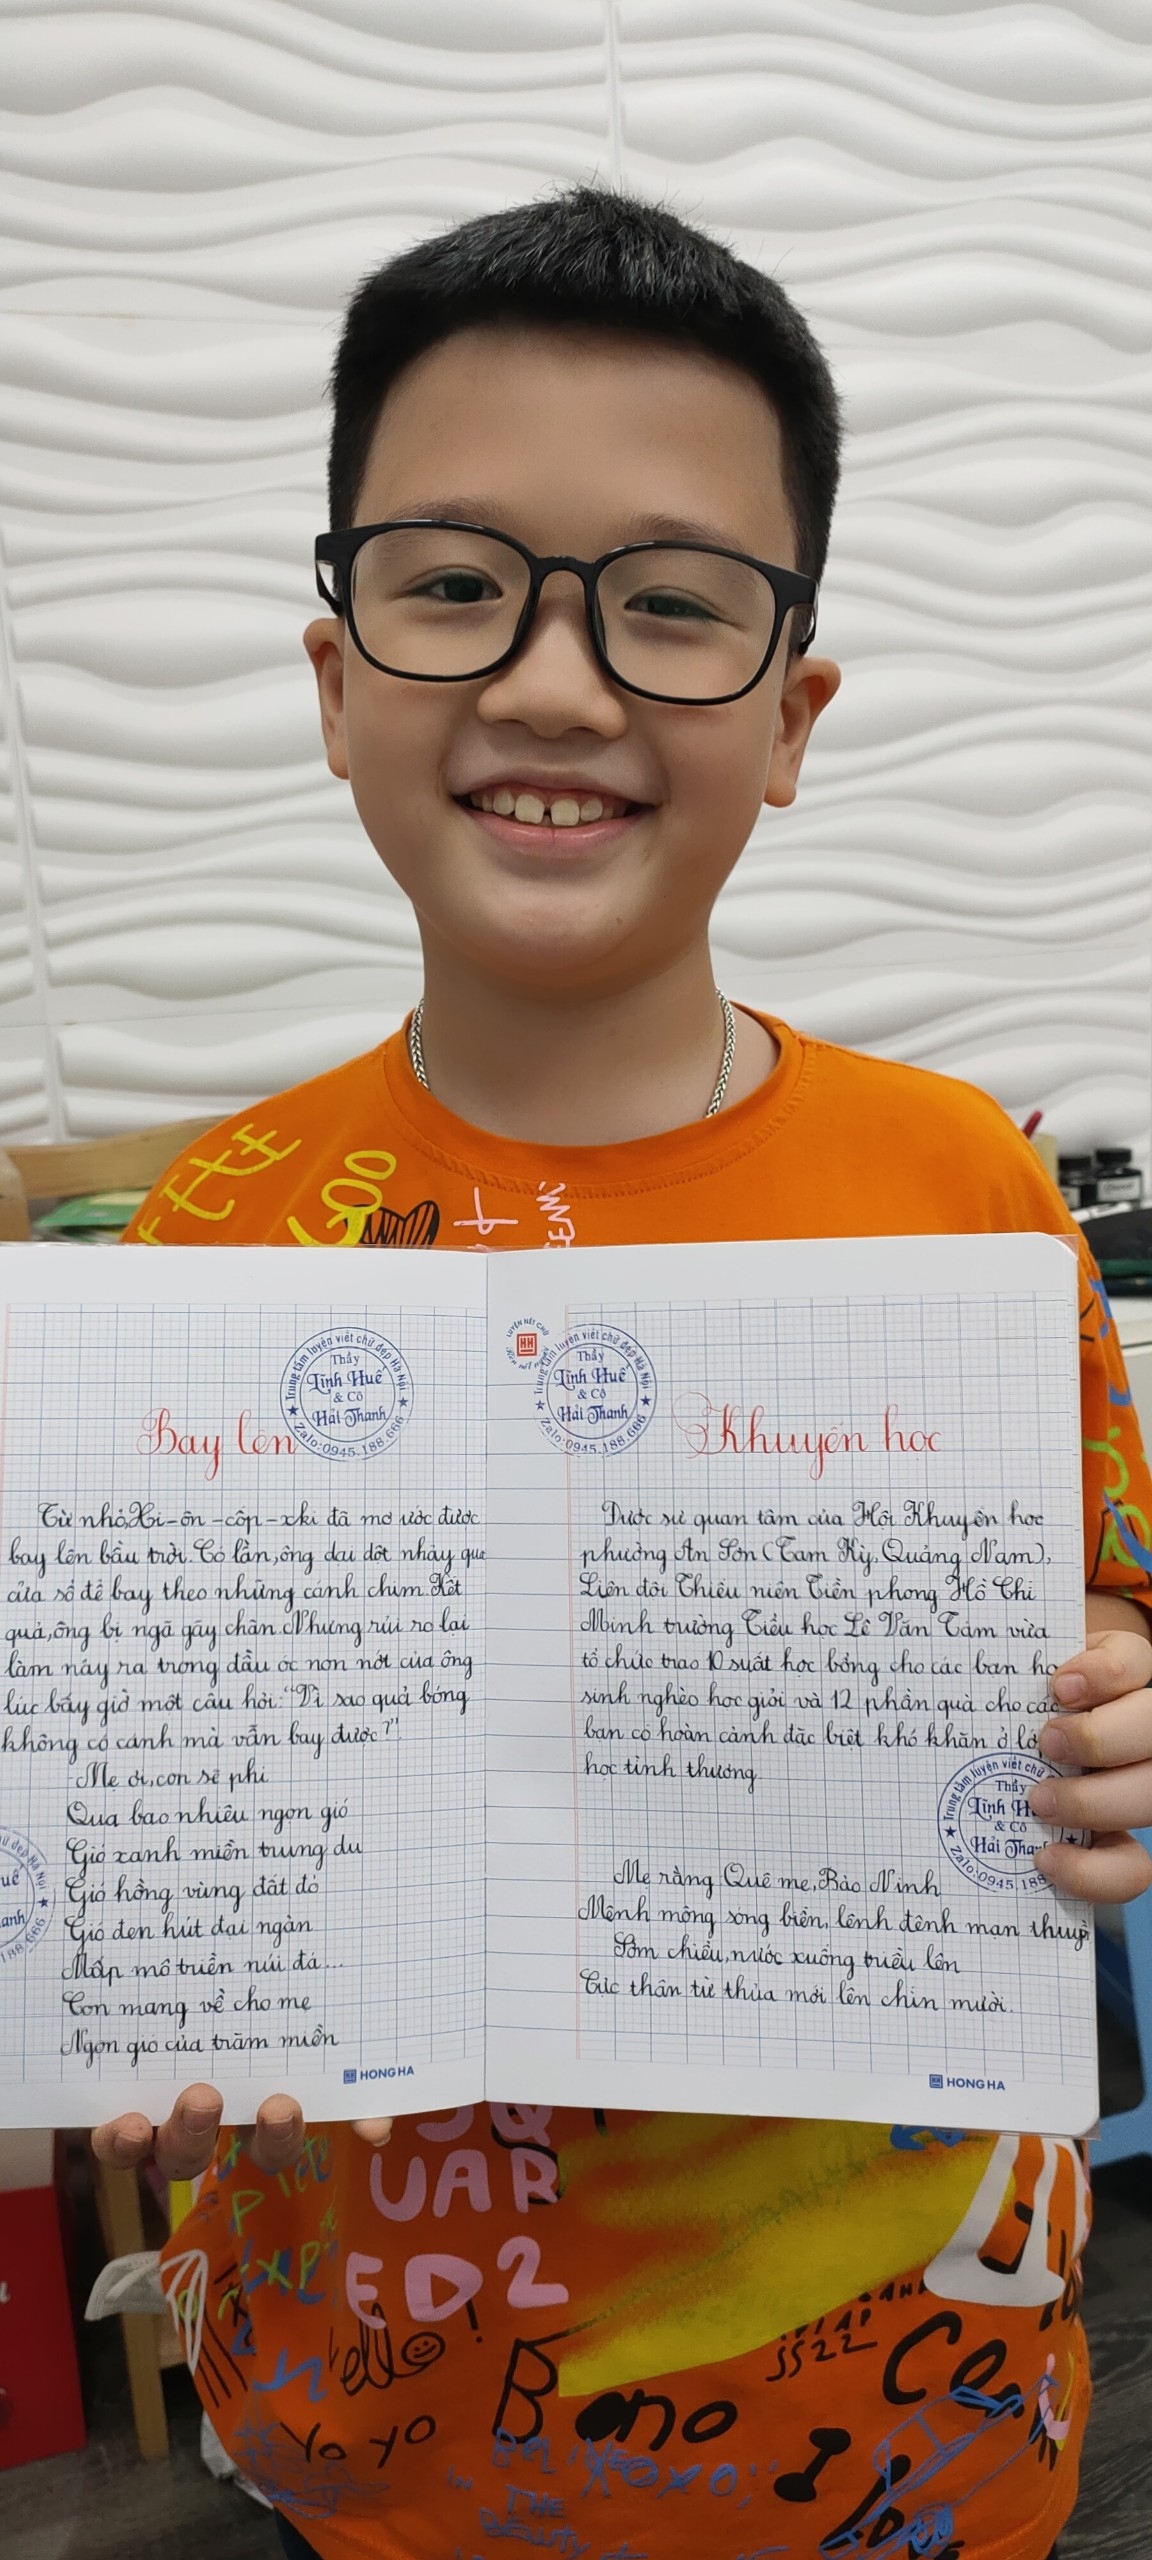 Trung tâm luyện viết chữ đẹp Hà Nội
Thầy
Lĩnh Huế
& Cô
Hải Thanh
Zalo:0945.188.666
Bay lên
Từ nhỏ, Xi-ôn-cốp-xki đã mơ ước được
bay lên bầu trời. Có lần, ông dại dột nhảy qua
cửa sổ để bay theo những cánh chim. Kết
quả, ông bị ngã gãy chân. Nhưng rủi ro lại
làm nảy ra trong đầu óc non nớt của ông
lúc bấy giờ một câu hỏi: "Vì sao quả bóng
không có cánh mà vẫn bay được?"
Mẹ ơi, con sẽ phi
Qua bao nhiêu ngọn gió
Gió xanh miền trung du
Gió hồng vùng đất đỏ
Gió đen hút đại ngàn
Mấp mô triền núi đá...
Con mang về cho mẹ
Ngọn gió của trăm miền
HONG HA
LUYỆN NÉT CHỮ
Trung tâm luyện viết chữ đẹp Hà Nội
Thầy
Lĩnh Huế
& Cô
Hải Thanh
Zalo:0945.188.666
Khuyến học
Được sự quan tâm của Hội Khuyến học
phường An Sơn (Tam Kỳ, Quảng Nam),
Liên đội Thiếu niên Tiền phong Hồ Chí
Minh trường Tiểu học Lê Văn Tám vừa
tổ chức trao 10 suất học bổng cho các bạn họ
sinh nghèo học giỏi và 12 phần quà cho các
bạn có hoàn cảnh đặc biệt khó khăn ở lớ
học tình thương.
Trung tâm luyện viết chữ
Thầy
Lĩnh H
& Cô
Hải Tha
Zalo:0945.188
Mẹ rằng Quê mẹ, Bảo Ninh
Mênh mông sóng biển, lênh đênh mạn thuyền
Sớm chiều, nước xuống triều lên
Cực thân từ thủa mới lên chín mười.
HONG HA
UAR
ED2
Hello
!
SS22
Bono
Co
Yo yo
XOXO
IN THE
BEAUTY